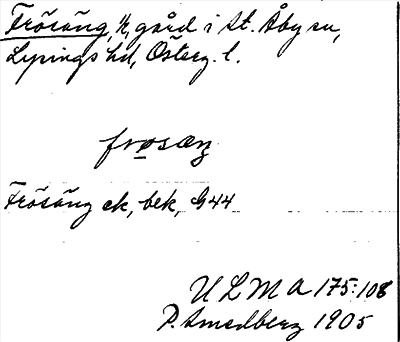 Frösäng, h, gård i St. Åby sn,
Lysings hd, Österg. l.
frøsæŋ
Frösäng ek, bek, G44
ULMA 175:108
P. Smedberg 1905